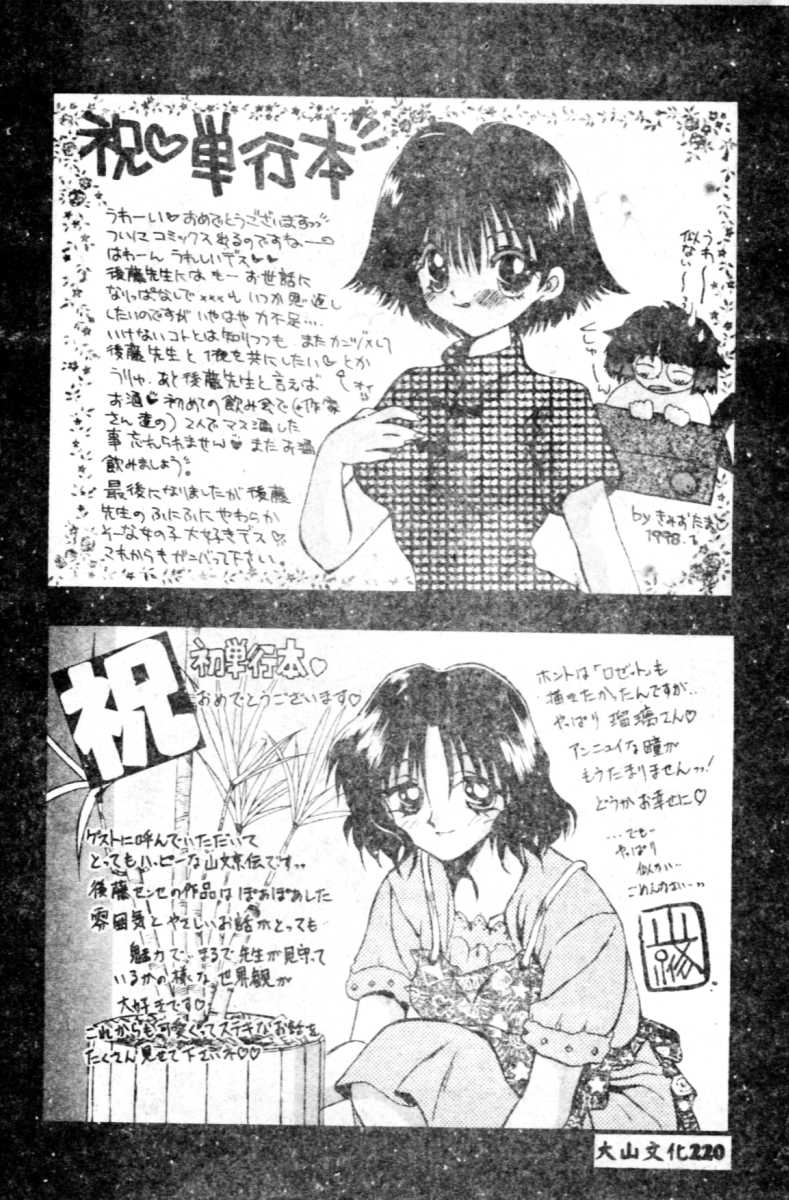 祝♡単行本
うわーい♡おめでとうございますッッ
ついにコミックス出るのですねー
はわーん うれしいデス♡♡
後藤先生には もー お世話に
なりっぱなしで×××も いつか恩返し
したいのですが いやはや 力不足…
いけないコトとは知りつつも、また
後藤先生と1夜を共にしたい♡とか
うりゃ。あと後藤先生と言えば
お酒♡初めての飲み会で(作家
さん達の)2人でマス酒した
事忘れられません♡またお酒
飲みましょう。
最後になりましたが後藤
先生の ふにふに やわらか
そーな女の子大好きデス♡
これからもガンバって下さい。
うわ〜〜
似ない〜〜
by きみおたまこ
1998.1
祝
初単行本♡
おめでとうございます♡
ホントは「ロゼット」も
描きたかったんですが…
やっぱり 瑠璃さん♡
アンニュイな瞳が
もうたまりませんッッ!
どうかお幸せに♡
…でもー
やっぱり
似ない…
ごめんなさいーッッ
ゲストに呼んでいただいて
とってもハッピーな山文京伝ですッッ
後藤センセの作品は ぽあぽあした
雰囲気と やさしいお話がとっても
魅力で… まるで先生が見守って
いるかの様な 世界観が
大好きです♡
これからも可愛くってステキなお話を
たくさん見せて下さいネ♡♡
大山文化220